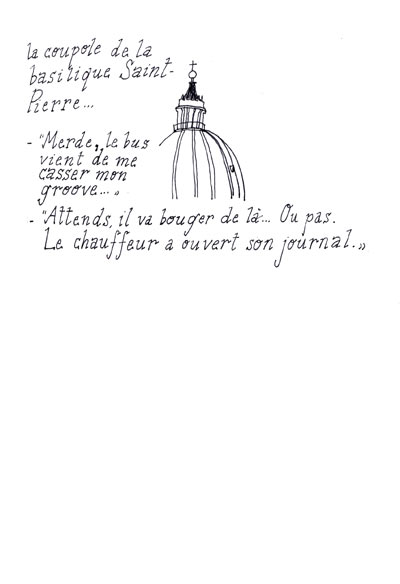 la coupole de la
basilique Saint-
Pierre...
- "Merde, le bus
vient de me
casser mon
groove... „
- "Attends, il va bouger de là... Ou pas.
Le chauffeur a ouvert son journal.»